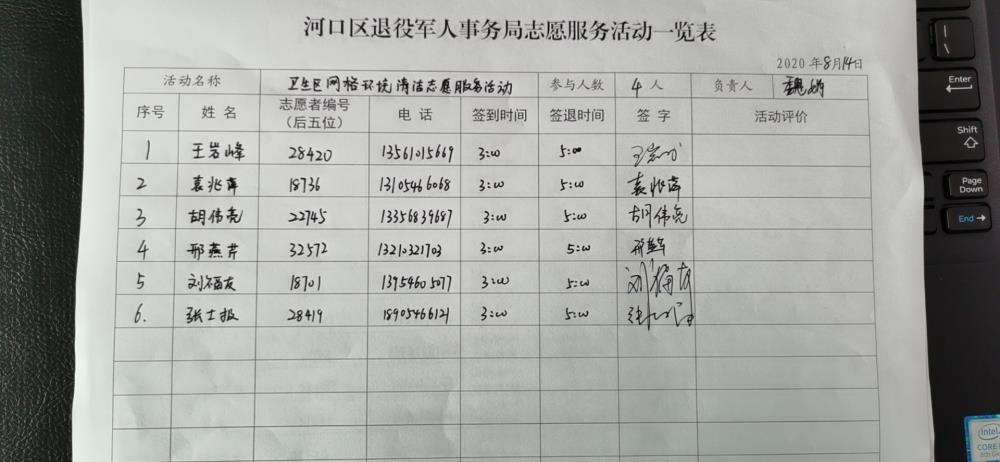 河口区退役军人事务局志愿服务活动一览表
2020年8月14日
活动名称 卫生区网格环境清洁志愿服务活动 参与人数 4人 负责人 魏娟
序号 姓名 志愿者编号（后五位） 电话 签到时间 签退时间 签字 活动评价
1 王岩峰 28420 13561015669 3:00 5:00 王岩峰
2 袁兆萍 18736 13105466068 3:00 5:00 袁兆萍
3 胡伟亮 22745 13356839687 3:00 5:00 胡伟亮
4 邢燕芹 32572 13210321703 3:00 5:00
5 刘福友 18701 13954605077 3:00 5:00 刘福友
6. 张士报 28419 18905466121 3:00 5:00
|
\
Enter
Shift
Page
Down
End
intel
CORE
8th Ge